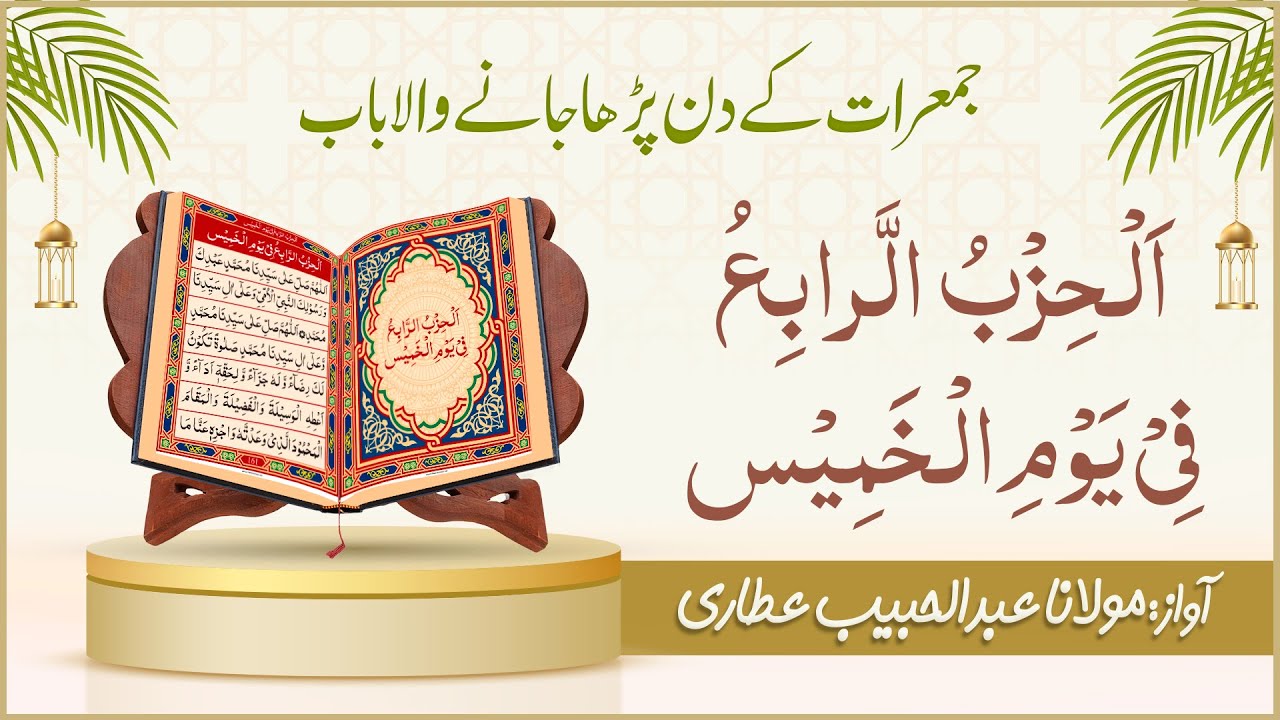 جمعرات کے دن پڑھا جانے والا باب
اَلْحِزْبُ الرَّابِعُ
فِیْ یَوْمِ الْخَمِیْس
آواز: مولانا عبدالحبیب عطاری
اَلْحِزْبُ الرَّابِعُ فِیْ یَوْمِ الْخَمِیْسِ
اَللّٰهُمَّ صَلِّ عَلٰی سَیِّدِنَا مُحَمَّدٍ عَبْدِكَ
وَرَسُوْلِكَ النَّبِیِّ الْاُمِّیِّ وَعَلٰی اٰلِ سَیِّدِنَا
مُحَمَّدٍ اَللّٰهُمَّ صَلِّ عَلٰی سَیِّدِنَا مُحَمَّدٍ
وَّعَلٰی اٰلِ سَیِّدِنَا مُحَمَّدٍ صَلٰوةً تَكُوْنُ
لَكَ رِضَآءً وَّلَهٗ جَزَآءً وَّلِحَقِّهٖ اَدَآءً وَّ
اَعْطِهِ الْوَسِیْلَةَ وَالْفَضِیْلَةَ وَالْمَقَامَ
الْمَحْمُوْدَ الَّذِیْ وَعَدْتَّهٗ وَاجْزِهٖ عَنَّا مَا
اَلْحِزْبُ الرَّابِعُ
فِیْ یَوْمِ الْخَمِیْسِ